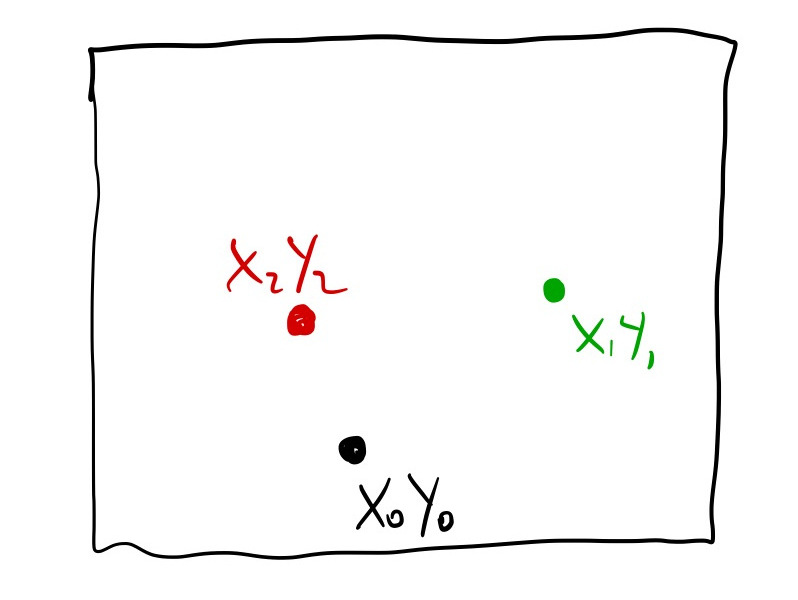 X₂Y₂
X₁Y₁
X₀Y₀